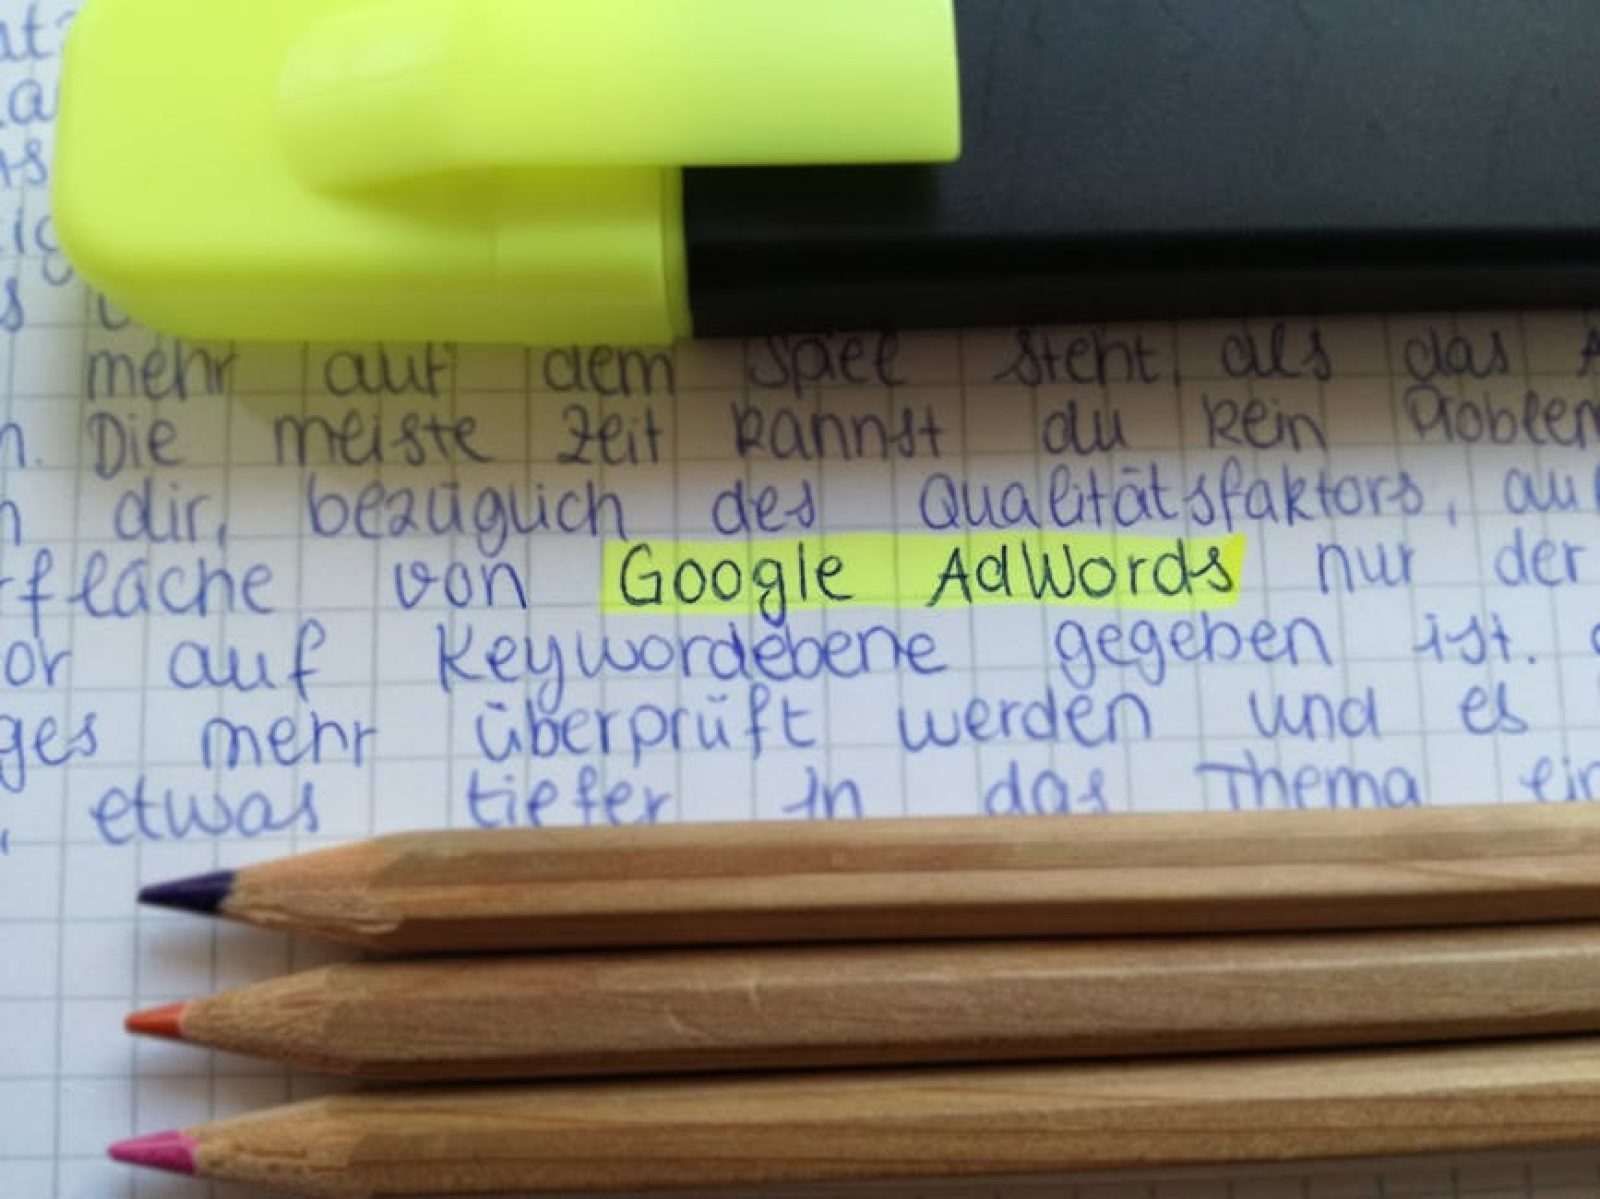 mehr auf dem Spiel steht, als das
n. Die meiste Zeit kannst du kein Problem
n dir, bezüglich des Qualitätsfaktors, auf
rfläche von Google AdWords nur der
or auf Keywordebene gegeben ist.
ges mehr überprüft werden und es
, etwas tiefer in das Thema ein